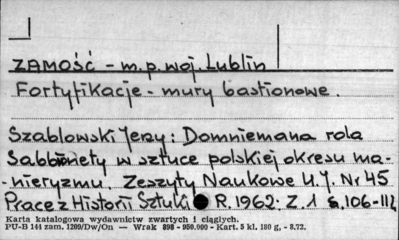 ZAMOŚĆ - m.p. woj. Lublin
Fortyfikacje - mury bastionowe.
Szablowski Jerzy: Domniemana rola
Sabbionety w sztuce polskiej okresu ma-
nieryzmu. Zeszyty Naukowe U.J. Nr 45
Prace z Historii Sztuki R. 1962. Z. 1 s. 106-112
Karta katalogowa wydawnictw zwartych i ciągłych.
PU-B 144 zam. 1209/Dw/On — Wrak 898 - 950.000 - Kart. 5 kl. 180 g, - 8.72.